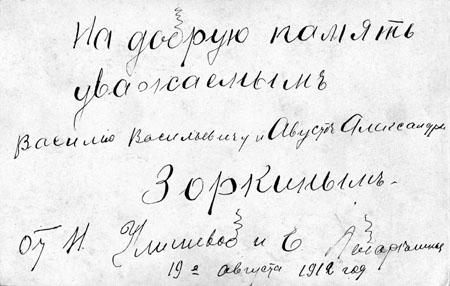 На добрую память
уважаемымъ
Василію Васильевичу и Августѣ Александр
Зоркинымъ.
отъ Н. и С
19 августа 1912 год